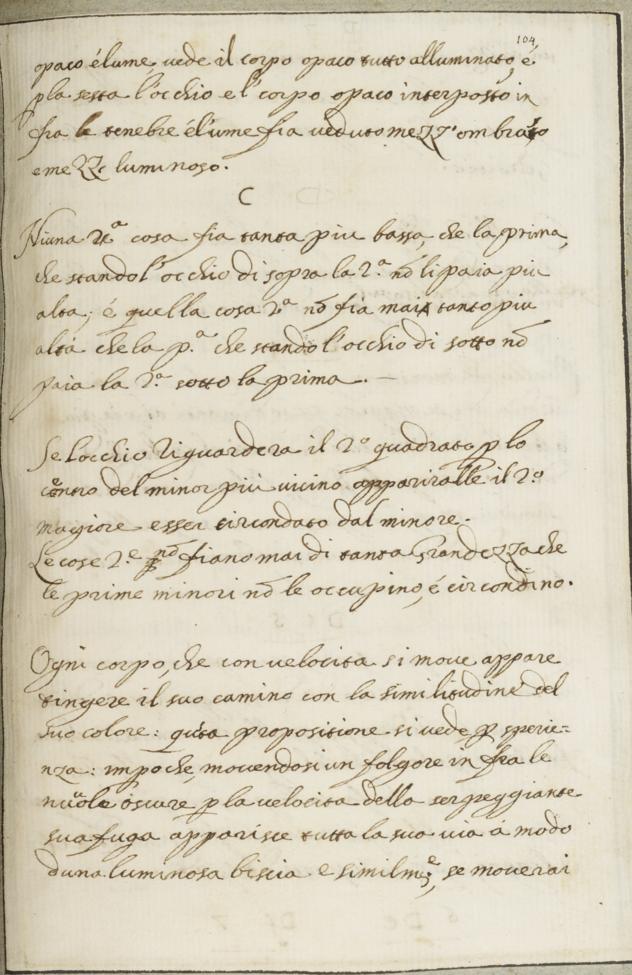 104
opaco é lume, vede il corpo opaco tutto alluminato, é
p la sesta l'occhio e l' corpo opaco interposto in
fra le tenebre é lume fia veduto mezz' ombrato
e mezzo luminoso.
C
Niuna 2ª cosa fia tanta piu bassa, che la prima,
che stando l'occhio di sopra la 2.ª nõ li paia piu
alta; é quella cosa 2ª nõ fia mai tanto piu
alta che la p.ª che stando l'occhio di sotto nõ
paia la 2.ª sotto la prima. —
Se locchio riguardera il 2º quadrato p lo
cẽntro del minor più vicino appariralle il 2º
magiore esser circondato dal minore.
Le cose 2.e nõ fiano mai di tanta grandezza che
le prime minori nõ le occupino, é circondino.
Ogni corpo, che con velocita si move appare
tingere il suo camino con la similitudine del
suo colore: q̃sta propositione si vede p sperie=
nza: impoche, movendosi un folgore in fra le
nuuole oscure p la velocita della serpeggiante
sua fuga apparisce tutta la sua via á modo
duna luminosa biscia e similmẽ, se moverai